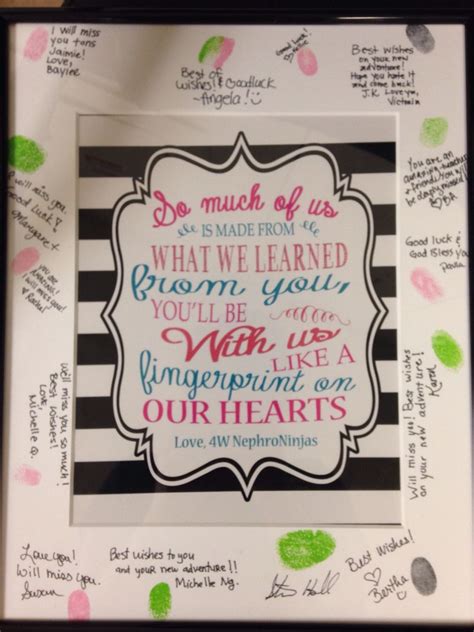 I will miss
you tons
Jaimie!
Love,
Baylee
Best of
wishes! & Goodluck
~Angela!
Good Luck!
Best wishes
on your new
adventure!
Hope you hate it
and come back!
J.K. Love you,
Victoria
You are an
amazing teacher
& friend! You will
be deeply missed!
I will miss you.
Good Luck!
Margaret
Good luck &
God Bless you
Paula
You are
AMAZING!
I will miss you!
Rachel
So much of us
IS MADE FROM
WHAT WE LEARNED
from you,
YOU'LL BE
With us
LIKE A
fingerprint on
OUR HEARTS
Love, 4W NephroNinjas
Will miss you so much!
Best Wishes!
Love,
Michelle Q.
Will miss you! Best wishes
on your new adventure!
Karen
Love you!
Will miss you.
Susan
Best wishes to you
and your new adventure!!
Michelle Ng.
Best Wishes!
Bertha